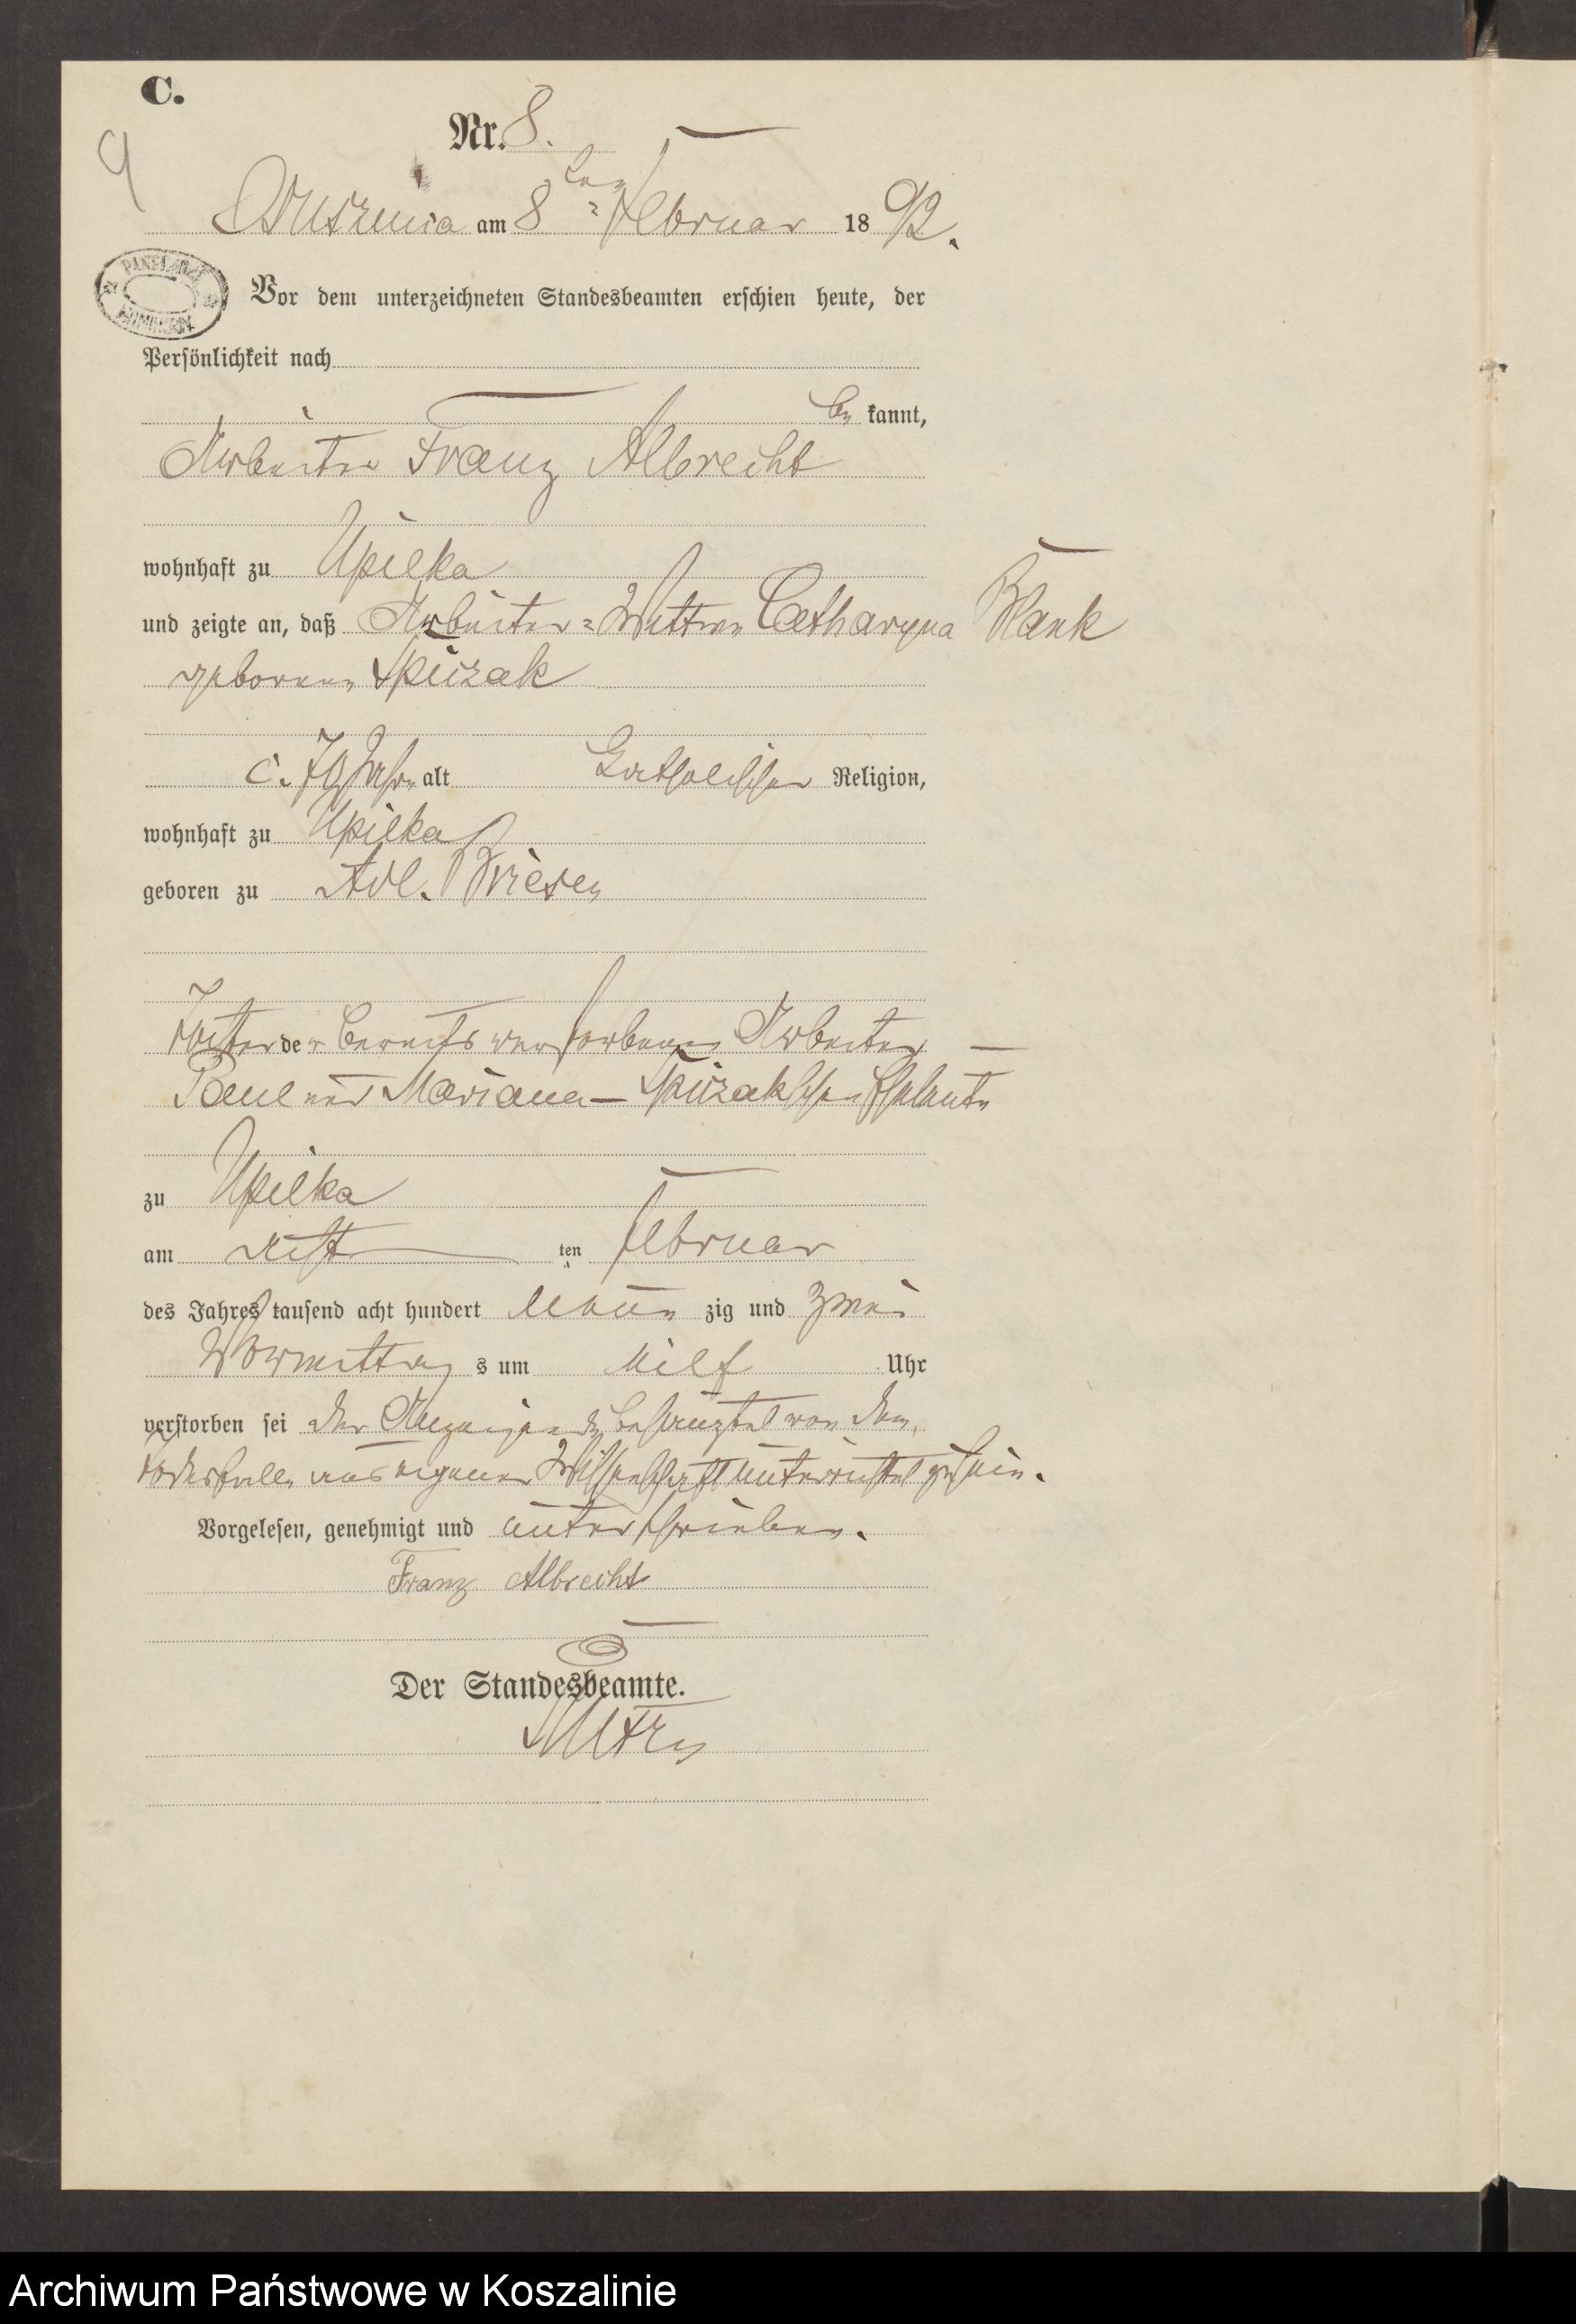 C.
9
Nr. 8.
am 8ten Februar 1892.
Vor dem unterzeichneten Standesbeamten erschien heute, der
Persönlichkeit nach
be kannt,
Arbeiter Franz Albrecht
wohnhaft zu Upilka
und zeigte an, daß Arbeiter-Wittwe Catharyna Blank
geborene
c. 70 Jahre alt katholischer Religion,
wohnhaft zu Upilka
geboren zu Adl. Briesen
Tochter der bereits verstorbenen Arbeiter
Paul und Mariana Eheleute
zu Upilka
am acht ten Februar
des Jahres tausend acht hundert neun zig und zwei
Vormittag s um elf Uhr
verstorben sei der Anzeigende von dem
Todesfalle aus eigener Wissenschaft unterrichtet zu sein.
Vorgelesen, genehmigt und unterschrieben.
Franz Albrecht
Der Standesbeamte.
Archiwum Państwowe w Koszalinie